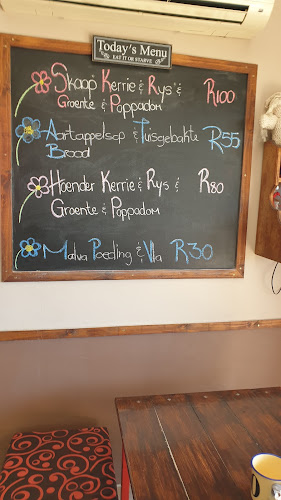 Today's Menu
EAT IT OR STARVE
Skaap Kerrie & Rys & R100
Groente & Poppadom
Aartappelsop & Tuisgebakte R55
Brood
Hoender Kerrie & Rys & R80
Groente & Poppadom
Malva Poeding & Vla R30